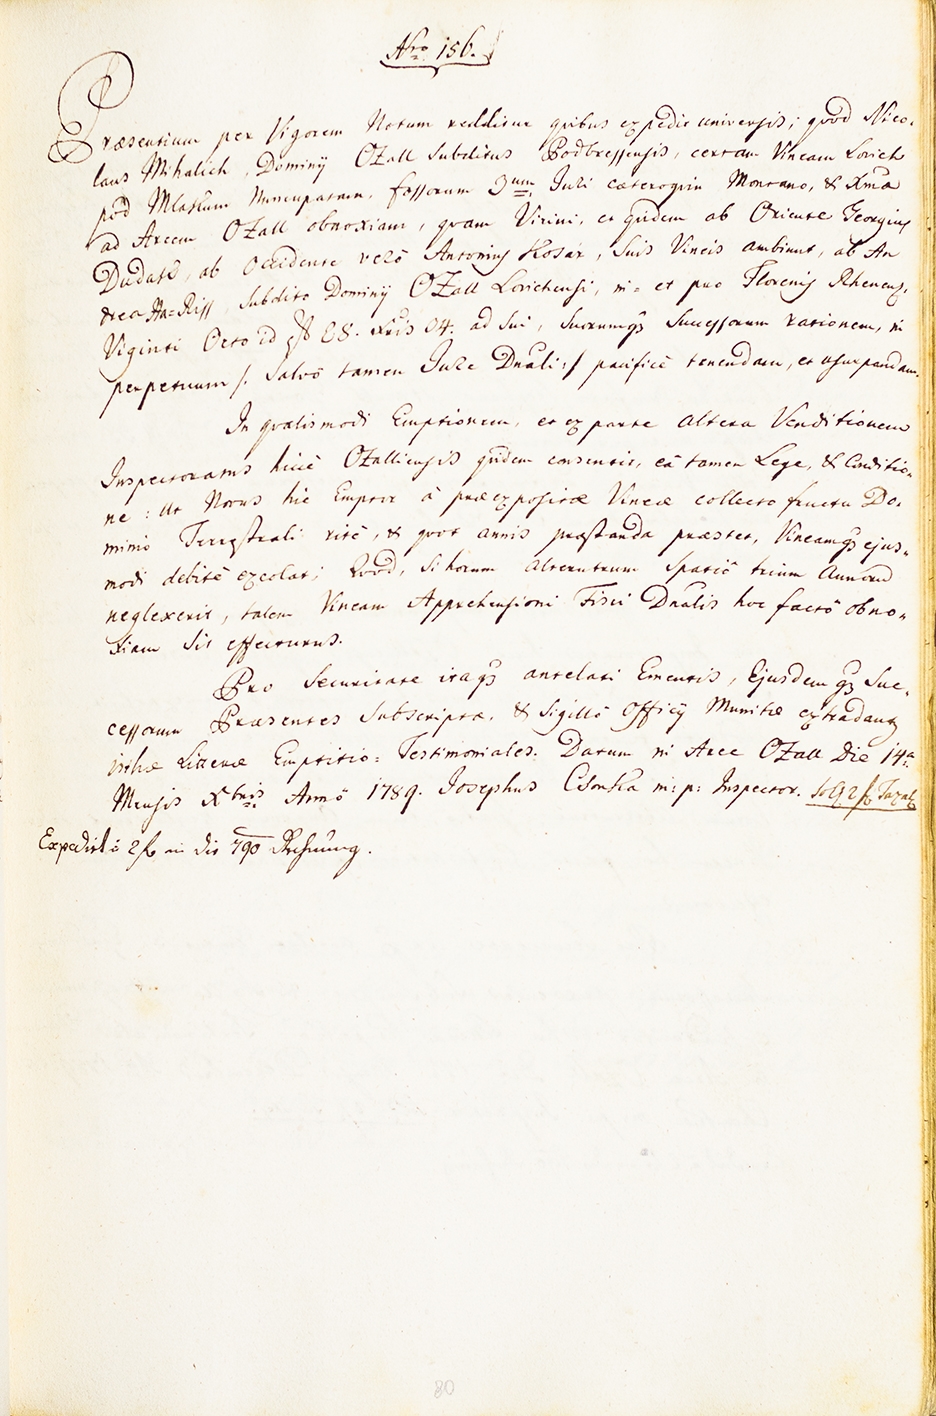 Nro 156.
Præsentium per Vigorem Notum redditur quibus expedit universis; quod Nico-
laus Mihalich, Dominÿ Ozall Subditus Podbressensis, certam Vineam Lorich
pod Mlakum Nuncupatam, fossorum 9um, Juri cæteroquin Montano, & Xmæ
ad Arcem Ozall obnoxiam, quam Vicini, et quidem ab Oriente Georgius
Dudasch, ab Occidente verò Antonius Kosar, Suis Vineis ambiunt, ab An
drea Subdito Dominÿ Ozall Lorichensi, in- et pro Florenis Rhenens.
Viginti Octo id est 28. xris 04. ad Sui, Suorumq; Successorum rationem, in
perpetuum /: Salvô tamen Jure Dnali :/ pacificè tenendam, et usurpandam.
In qualismodi Emptionem, et ex parte altera Venditionem
Inspectoratus hicce Ozalliensis quidem consentit, eâ tamen Lege, & Conditio-
ne: Ut Novus hic Emptor à præexpositæ Vineæ collecto fructu Do-
minio Terrestrali ritè, & quot annis præstanda præstet, Vineamq; ejus-
modi debitè excolat; Quod, Si horum alterutrum Spatiô trium Annorum
neglexerit, talem Vineam Apprehensioni Fisci Dnalis hoc factô obno-
xiam Sit effecturus.
Pro Securitate itaq; antelati Ementis, Ejusdemq; Suc-
cessorum Præsentes Subscriptæ, & Sigillô Officÿ Munitæ extradantur
isthæ Litteræ Emptitio- Testimoniales. Datum in Arce Ozall Die 14a
Mensis Xbris Annô 1789. Josephus Csonka m: p: Inspector. 2 f Taxat
Expedirt à 2 f in die 790 Rechnung.
80